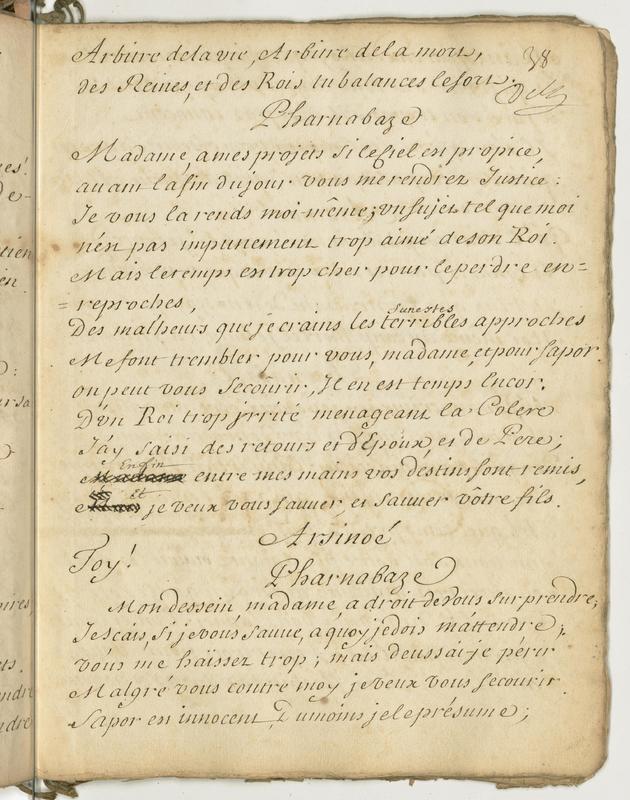 38
Arbitre de la vie, Arbitre de la mort,
des Reines, et des Rois tu balances le sort.
Pharnabaze
Madame, a mes projets si le Ciel en propice,
auant la fin du jour vous me rendrez Justice:
Je vous la rends moi-même; vn sujet tel que moi
n'en pas impunement trop aimé de son Roi.
Mais le temps en trop cher pour le perdre en=
=reproches,
funestes
Des malheurs que je crains les terribles approches
Me font trembler pour vous, madame, et pour sapor.
on peut vous secourir, Il en est temps Encor.
D'vn Roi trop jrrité menageant la Colere
J'ay saisi des retours et d'Epoux, et de Pere;
Enfin
Madame entre mes mains vos destins sont remis,
Et
je veux vous sauuer, et sauuer vôtre fils.
Arsinoé
Toy!
Pharnabaze
Mon dessein, madame, a droit de vous surprendre;
Je scais, si je vous sauue, a quoy je dois m'attendre;
vous me haïssez trop; mais deussai-je périr
Malgré vous contre moy je veux vous secourir.
Sapor en innocent, Du moins je le présume;